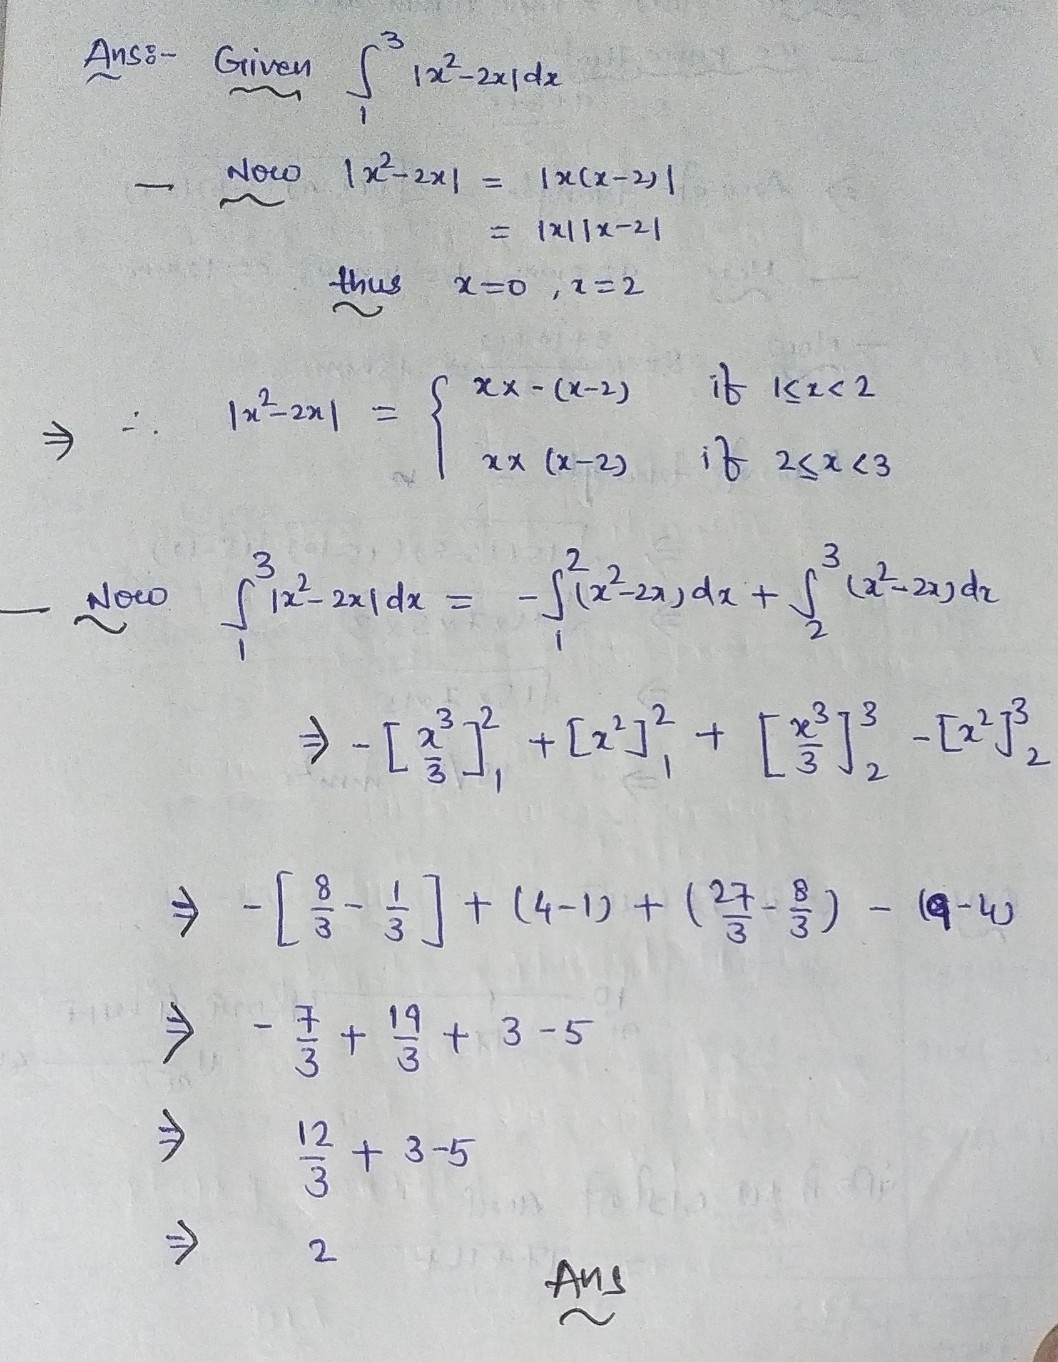 Ans:- Given ∫₁³ |x²-2x|dx
— Now |x²-2x| = |x(x-2)|
= |x||x-2|
thus x=0, x=2
⇒ ∴ |x²-2x| = { x×-(x-2) if 1≤x<2
x×(x-2) if 2≤x<3
— Now ∫₁³ |x²-2x|dx = -∫₁² (x²-2x)dx + ∫₂³ (x²-2x)dx
⇒ -[x³/3]₁² + [x²]₁² + [x³/3]₂³ - [x²]₂³
⇒ -[8/3 - 1/3] + (4-1) + (27/3 - 8/3) - (9-4)
⇒ -7/3 + 19/3 + 3-5
⇒ 12/3 + 3-5
⇒ 2
Ans